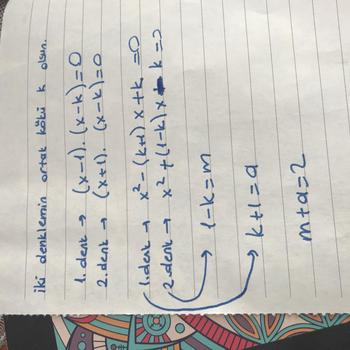 iki denklemin ortak kökü k olsun.
1. denk → (x-1).(x-k)=0
2. denk → (x+1).(x-k)=0
1. denk → x²-(k+1)x+k=0
2. denk → x²+(1-k)x-k=0
1-k=m
k+1=a
m+a=2